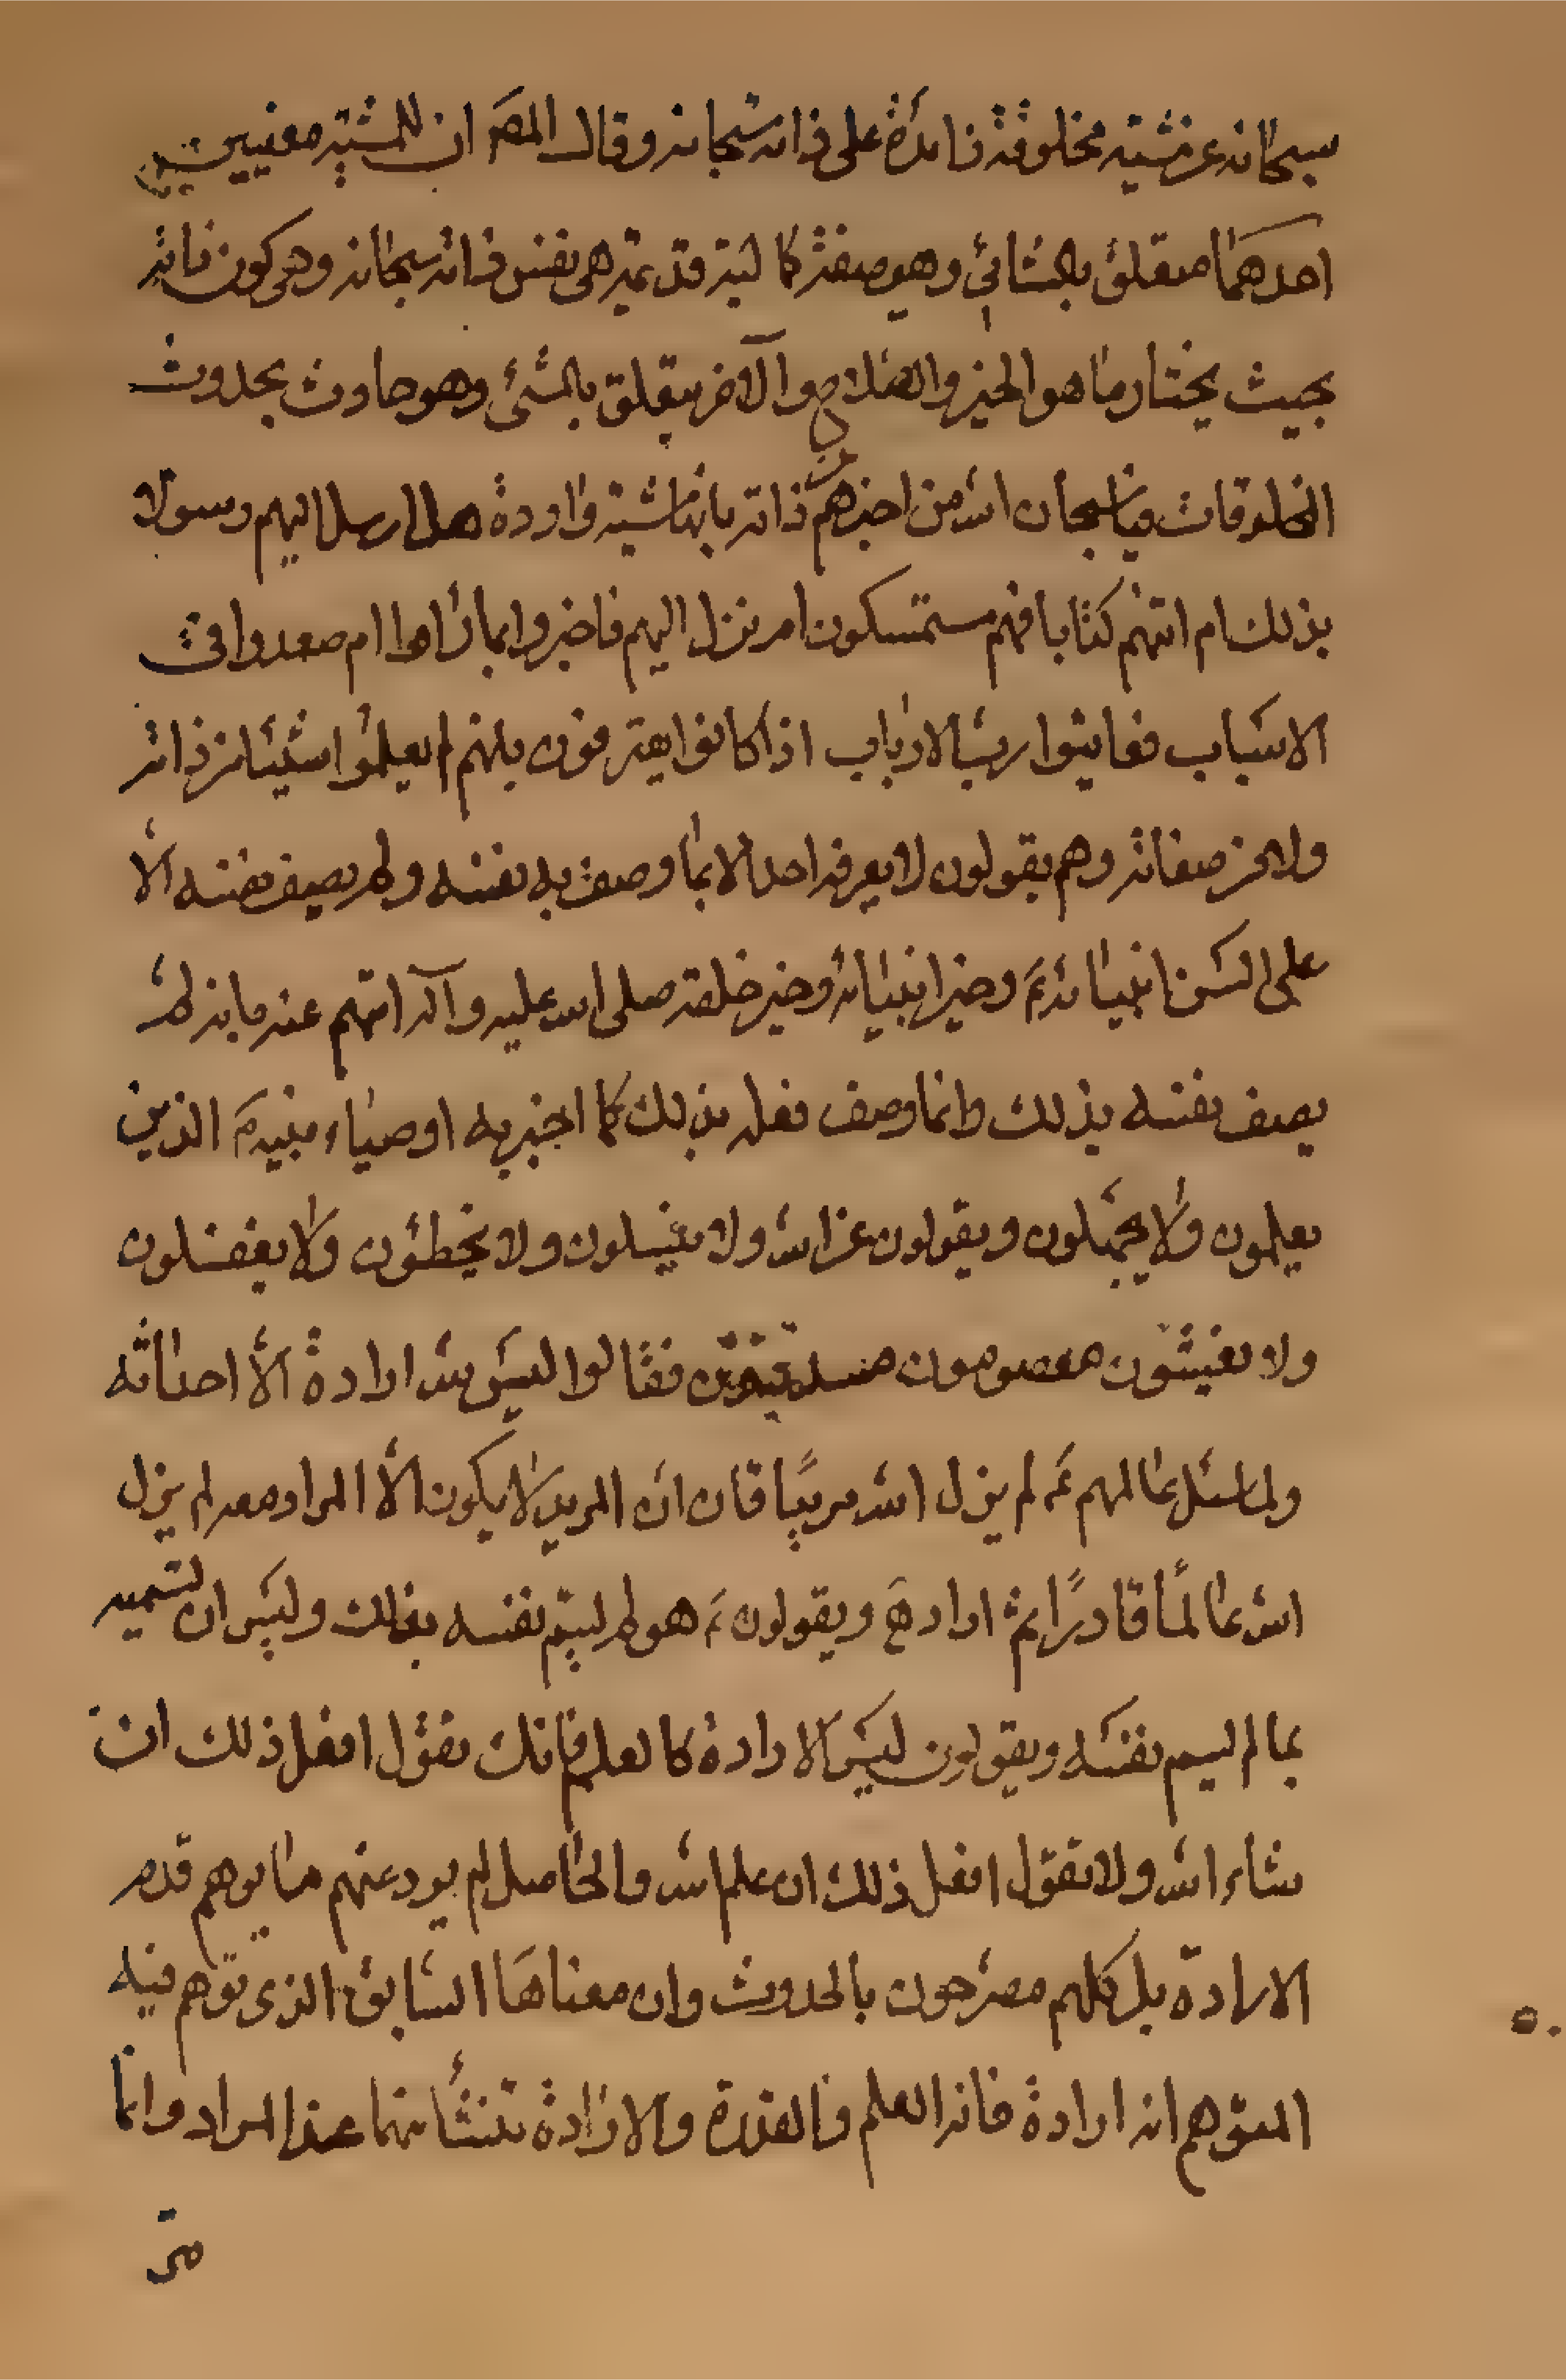 سبحانه عن مشيته مخلوقة زائدة على ذاته سبحانه وقال المصَ ان للمشية معنيين
احدهما متعلق بالشائي وهو صفة كمالية قديمة هي نفس ذاته سبحانه وهي كون ذاته
بحيث يختار ما هو الخير والصلاح والآخر يتعلق بالمشئ وهو حادث بحدوث
المخلوقات فيا سبحان الله من اخبرهم ان ذاته بانها مشية وارادة هل ارسل اليهم رسولا
بذلك ام اتتهم كتابا فهم مستمسكون ام نزل اليهم فاخبروا بما راهوا ام صعدوا في
الاسباب فعاينوا رب الارباب اذا كانوا يعترفون بانهم لم يعلموا شيئا من ذاته
ولا من صفاته وهم يقولون لا يعرفه احد الا بما وصف به نفسه ولم يصف نفسه الا
على السن انبيائه عَ وخير انبيائه وخير خلقه صلى الله عليه وآله اتهم عنه مابنه لم
يصف نفسه بذلك وانما وصف فعله بذلك كما اخبر به اوصياء نبيه عَ الذين
يعلمون ولا يجهلون ويقولون عن الله ولا ينسلون ولا يخطئون ولا يغفلون
ولا يغيشون معصومون فقالوا ليس لله ارادة الا احداثه
ولما سئل عالمهم عَ لم يزل الله مريدا قال ان المريد لا يكون الا المراد معه لم يزل
الله عالمًا قادرًا ثم اراد هَ ويقولون عَ هو لم يسم نفسه بذلك وليس ان تسميه
بما لم يسم نفسه ويقولون ليس الارادة كالعلم فانك تقول افعل ذلك ان
شاء الله ولا تقول افعل ذلك ان علم الله والحاصل لم يرد عنهم ما يوهم قدم
الارادة بل كلهم مصرحون بالحدوث وان معناها السابق الذي توهم فيه
المتوهم انه ارادة فانه العلم والقدرة والارادة تنشأ منهما عند المراد وانما